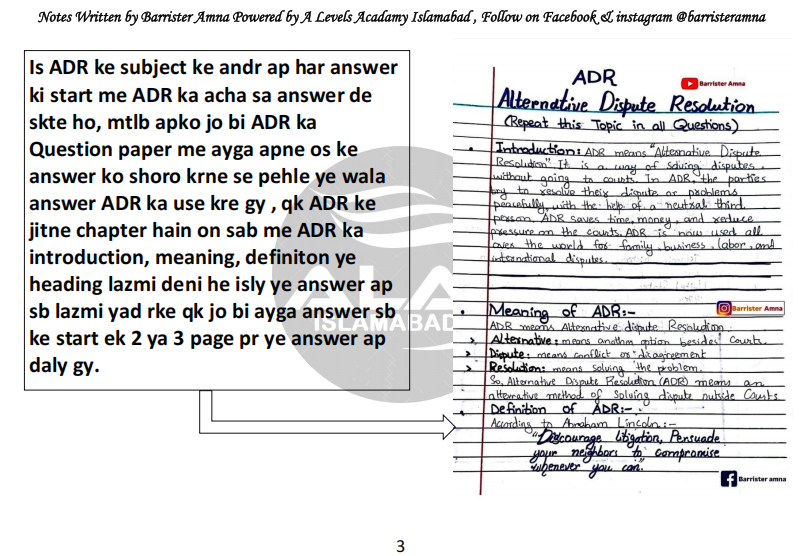 Notes Written by Barrister Amna Powered by A Levels Acadamy Islamabad , Follow on Facebook & instagram @barristeramna
Is ADR ke subject ke andr ap har answer
ki start me ADR ka acha sa answer de
skte ho, mtlb apko jo bi ADR ka
Question paper me ayga apne os ke
answer ko shoro krne se pehle ye wala
answer ADR ka use kre gy , qk ADR ke
jitne chapter hain on sab me ADR ka
introduction, meaning, definiton ye
heading lazmi deni he isly ye answer ap
sb lazmi yad rke qk jo bi ayga answer sb
ke start ek 2 ya 3 page pr ye answer ap
daly gy.
ALA
ISLAMABAD
ADR
Barrister Amna
Alternative Dispute Resolution
(Repeat this Topic in all Questions)
Introduction: ADR means "Alternative Dispute
Resolution" It is a way of solving disputes
without going to courts. In ADR the parties
try to resolve their dispute or problems
peacefully, with the help of a neutral third
person. ADR saves time, money, and reduce
pressure on the courts. ADR is now used all
over the world for family, business, labor, and
international disputes.
Meaning of ADR:-
Barrister Amna
ADR means Alternative dispute Resolution
Alternative: means another option besides courts.
Dispute: means conflict or disagreement
Resolution: means solving the problem.
So, Alternative Dispute Resolution (ADR) means an
alternative method of solving dispute outside Courts
Definition of ADR:-
According to Abraham Lincoln:-
"Discourage litigation, Persuade
your neighbors to compromise
whenever you can."
Barrister amna
3